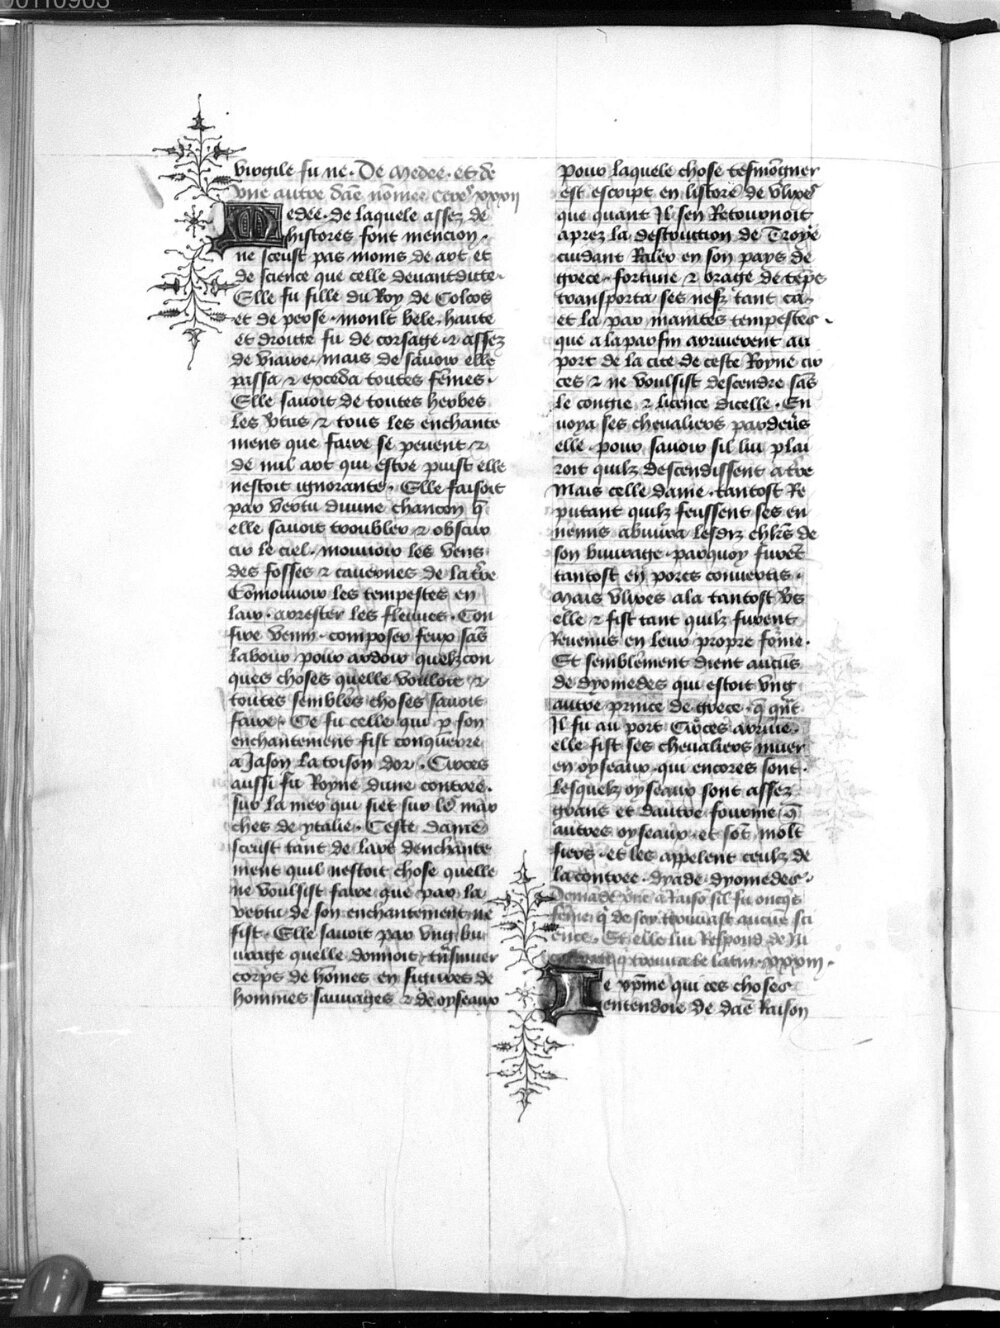 virgile fu ne. De Medee. et de
une autre dãe nõmee Circes xxxii
Medee. de laquele assez de
histores font mencion.
ne sceust pas moins de art et
de science que celle devantditte.
Elle fu fille du Roy de Colcos
et de perse. moult bele. haute
et droitte fu de corsage. & assez
de viaire. mais de savoir elle
passa & exceda toutes fẽmes.
Elle savoit de toutes herbes
les vtus & tous les enchante
mens que faire se peuent &
de nul art qui estre puist elle
nestoit ignorante. Elle faisoit
par vertu dune chancon q̃
elle savoit troubler & obscur
cir le ciel. mouvoir les vens
des fosses & cavernes de la tr̃e
Cõmouvoir les tempestes en
lair. arrester les fleuves. Con
fire venin. composer feux sãs
labour pour ardoir quelzcon
ques choses quelle vouloit &
toutes sembles choses savoit
faire. Ce fu celle qui p son
enchantement fist conquerre
a Jason la toison dor. Circes
aussi fu Royne dune contree.
sur la mer qui siet sur les mar
ches de ytalie. Ceste dame
sceust tant de lart denchante
ment quil nestoit chose quelle
ne voulsist faire que par la
vertu de son enchantement ne
fist. Elle savoit par vng bu
vrage quelle donnoit trãsmuer
corps de hõmes en figures de
hommes sauvages & de oyseaux
pour laquele chose tesmõgner
est escript en listore de vlixes
que quant Il sen Retournoit
aprez la destruction de Troye
cuidant Raler en son pays de
grece. fortune & orage de tẽps
transporta ses nefz tant ca
et la par maintes tempestes.
que a la parfin arriverent au
port de la cite de ceste Royne cir
ces & ne voulsist descendre sãs
le congie & licence dicelle. En
voya ses chevaliers par devs
elle. pour savoir sil lui plai
roit quilz descendissent a tr̃e
Mais celle dame. tantost Re
putant quilz feussent ses en
nemis abuvra lesdiz chlrs de
son buvrage. parquoy furẽt
tantost en porcs convertis.
Mais vlixes ala tantost vs
elle & fist tant quilz furent
Revenus en leur propre fõrme.
Et semblement dient aucũs
de dyomedes qui estoit vng
autre prince de grece. q̃ qñt
Il fu au port Circes arrive.
elle fist ses chevaliers muer
en oyseaux. qui encores sont.
lesquelz oyseaux sont assez
grans et dautre fourme q̃
autres oyseaux. et sõt molt
fiers. et les appelent ceulz de
la contree. dyade dyomedes.
Demande xñe a Raison sil fu oncqs
fẽme q̃ de soy trouvast aucune sci
ence. Et elle lui Respond de Ni
costrate q trouva le latin. xxxiii.
Ie xpine qui ces choses
entendoie de dãe Raison